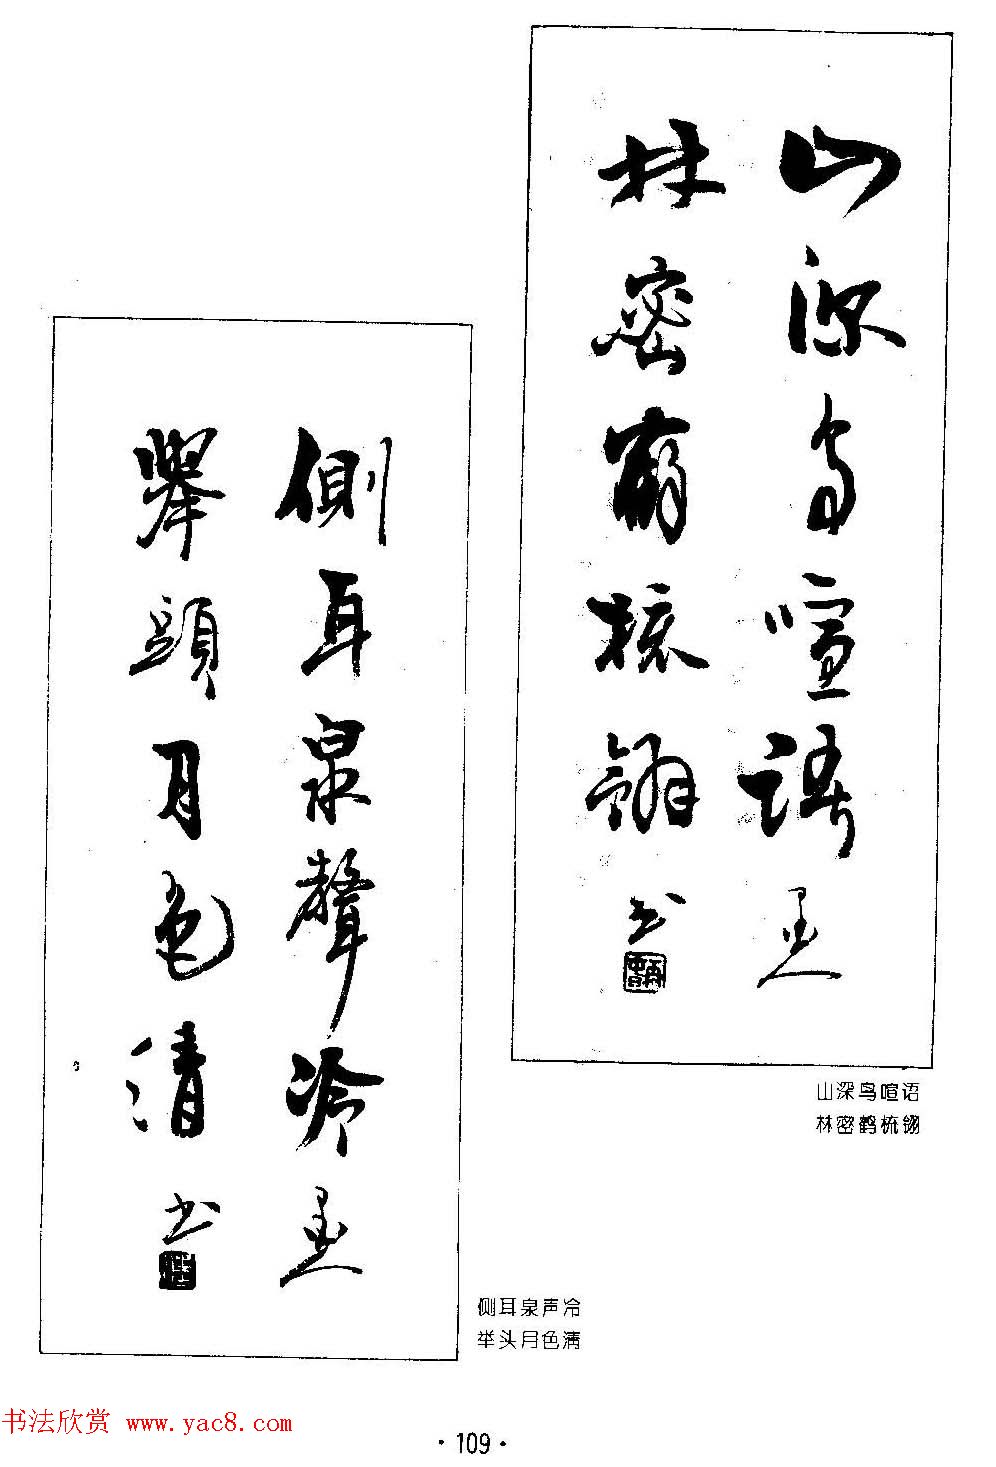 山深鸟喧語
林密鶴梳翎
书
山深鸟喧语
林密鹤梳翎
側耳泉聲冷
舉頭月色清
书
侧耳泉声冷
举头月色清
书法欣赏 www.yac8.com
·109·